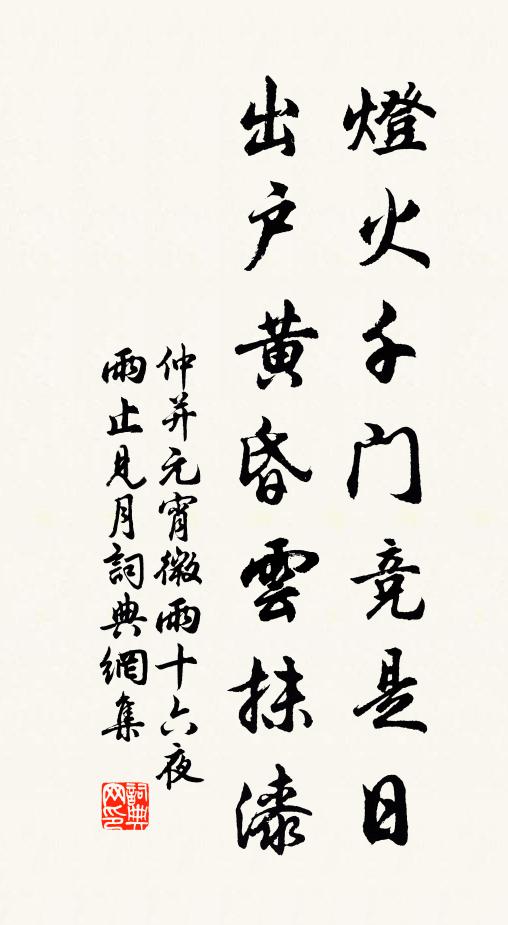 燈火千門竞是日
出户黄昏雲抹漆
仲并元宵微雨十六夜
雨止見月詞典網集
詞典网印